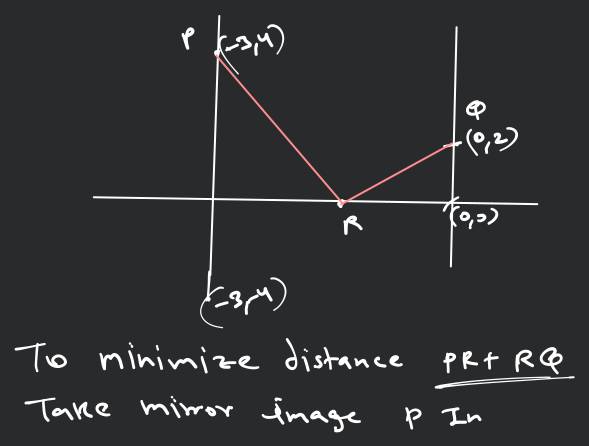 P (-3,4)
Q
(0,2)
R
(0,0)
(-3,-4)
To minimize distance PR+ RQ
Take mirror image P In